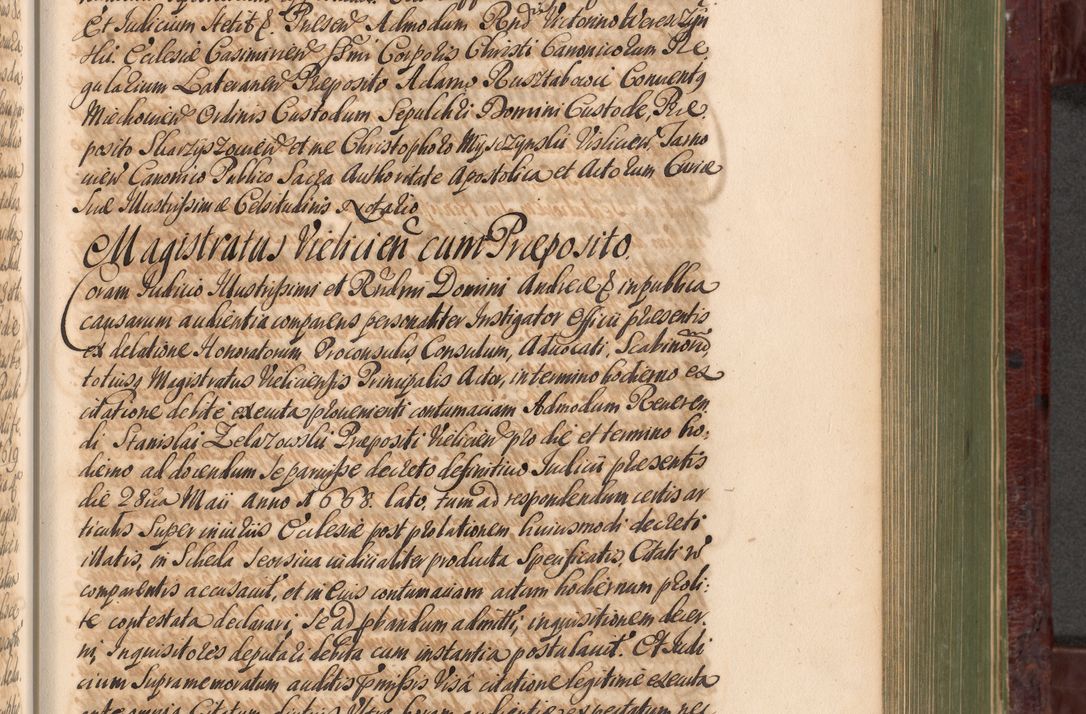 Et Judicium stetit &. Presen. Admodum Rndis Victorino Wereszczyn
skii. Ecclesiæ Casimirien. SSmi Corporis Christi Canonicorum Re
gularium Lateranen. Præposito Adamo Rusztabowii Conventq
Miechovien. Ordinis Custodum Sepulchri Domini Custode, Præ
posito Skarzyszovien. et me Christophoro Myszczynskii Vislicien. Tarno
vien. Canonico Publico Sacra Authoritate Apostolica et Actorum Curiæ
Suæ Illustrissimæ Celsitudinis Notario.
Magistratus Vielicien. cum Præposito.
Coram Judicio Illustrissimi et Rndmi Domini Andreæ & in publica
causarum audientia comparens personaliter Instigator Officii præsentis
ex delatione Honoratorum Proconsulis, Consulum, Advocati, Scabinorum,
totiusq Magistratus Vieliciensis Principalis Actor, in termino hodierno ex
citatione debite executa provenienti contumaciam Admodum Reveren
di Stanislai Zelazowskii Præpositi Vielicien. pro die et termino ho:
dierno ad docendum se paruisse decreto definitivo Judicii præsentis
die 28va Maii anno 1668. lato, tum ad respondendum certis ar
ticulis super iniuriis Ecclesiæ post prolationem huiusmodi decreti
illatis, in Scheda seorsiva iudicialiter producta specificatis, Citati nō
comparentis accusavit, et in eius contumaciam actum hodiernum pro li:
te contestata declarari, se ad pbandum admitti, inquisitionem decer
ni, Inquisitores deputari debita cum instantia postulavit. Et Judi
cium Supramemoratum auditis pmissis Visa citatione legitime executa
ante omnia Citatum